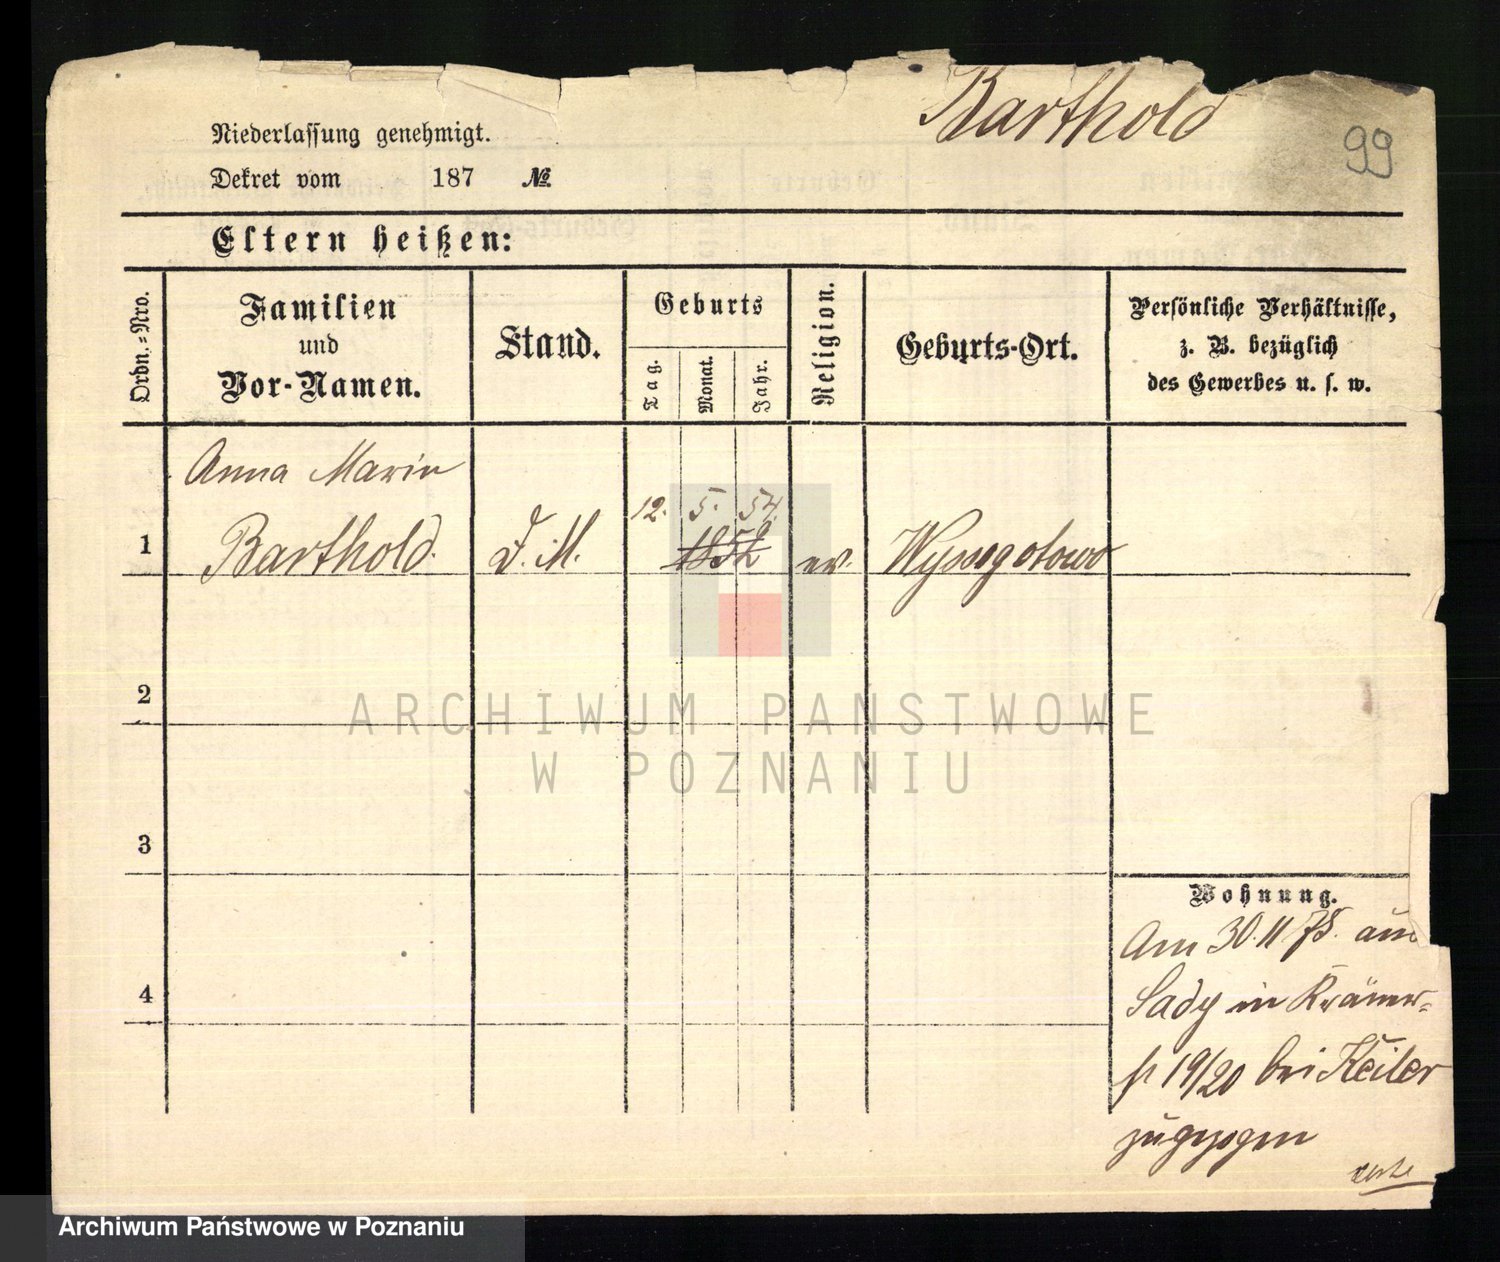 Barthold
99
Niederlassung genehmigt.
Dekret vom 187 №
Eltern heißen:
Ordn.=Nro.
Familien
und
Vor-Namen.
Stand.
Geburts
Tag.
Monat.
Jahr.
Religion.
Geburts-Ort.
Persönliche Verhältnisse,
z. B. bezüglich
des Gewerbes u. s. w.
Anna Marie
1 Barthold. D. M. 12. 5. 54. 1852 ev. Wyssogotowo
2
3
4
Wohnung.
Am 30.11 78. aus
Sady in Krämer=
st 19/20 bei Keiler
zugezogen
ARCHIWUM PAŃSTWOWE
W POZNANIU
Archiwum Państwowe w Poznaniu